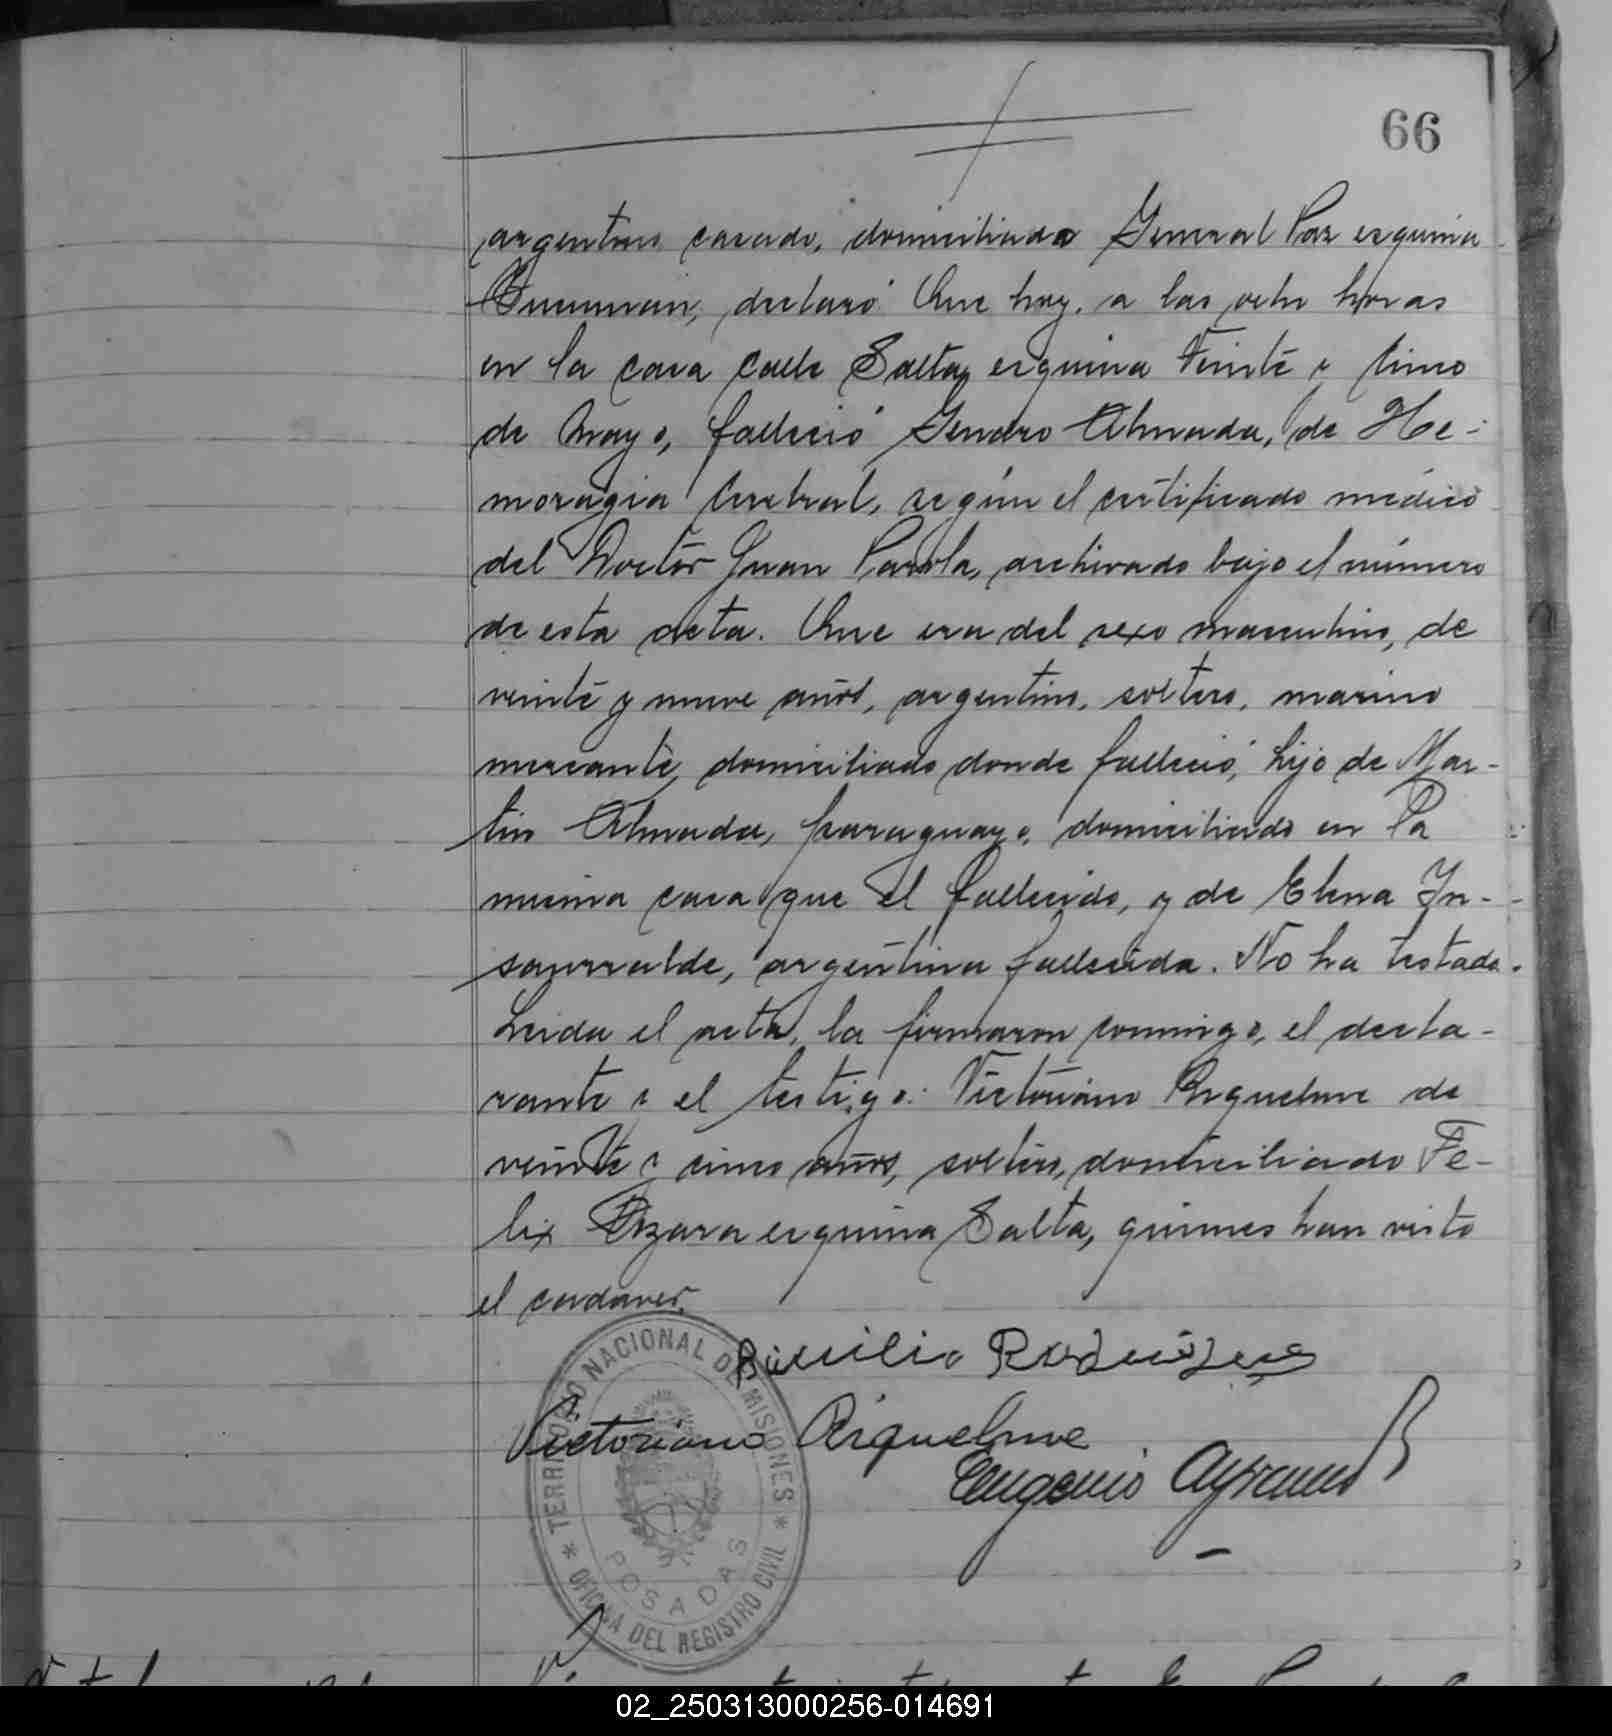 66
argentino casado, domiciliado General Paz esquina
Tucuman, declaró: Que hoy, a las ocho horas
en la casa calle Salta esquina Veinte y cinco
de Mayo, falleció Genaro Almada, de He-
moragia Cerebral, según el certificado médico
del Doctor Juan Parola, archivado bajo el número
de esta acta. Que era del sexo masculino, de
veinte y nueve años, argentino, soltero, marino
mercante, domiciliado donde falleció, hijo de Mar-
tin Almada, paraguayo, domiciliado en la
misma casa que el fallecido, y de Elena In-
saurralde, argentina fallecida. No ha testado.
Leida el acta, la firmaron conmigo, el decla-
rante y el testigo: Victoriano Riquelme de
veinte y cinco años, soltero, domiciliado Fe-
lix Azara esquina Salta, quienes han visto
el cadaver.
Rodriguez
Victoriano Riquelme
Eugenio
* TERRITORIO NACIONAL DE MISIONES *
OFICINA DEL REGISTRO CIVIL
POSADAS
02_250313000256-014691